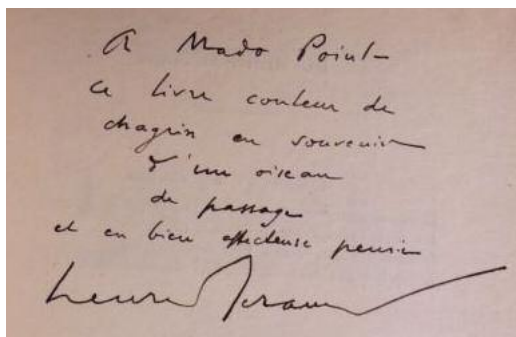 A Mado Point
ce livre couleur de
chagrin en souvenir
d'un oiseau
de passage
et en bien affectueuse pensée